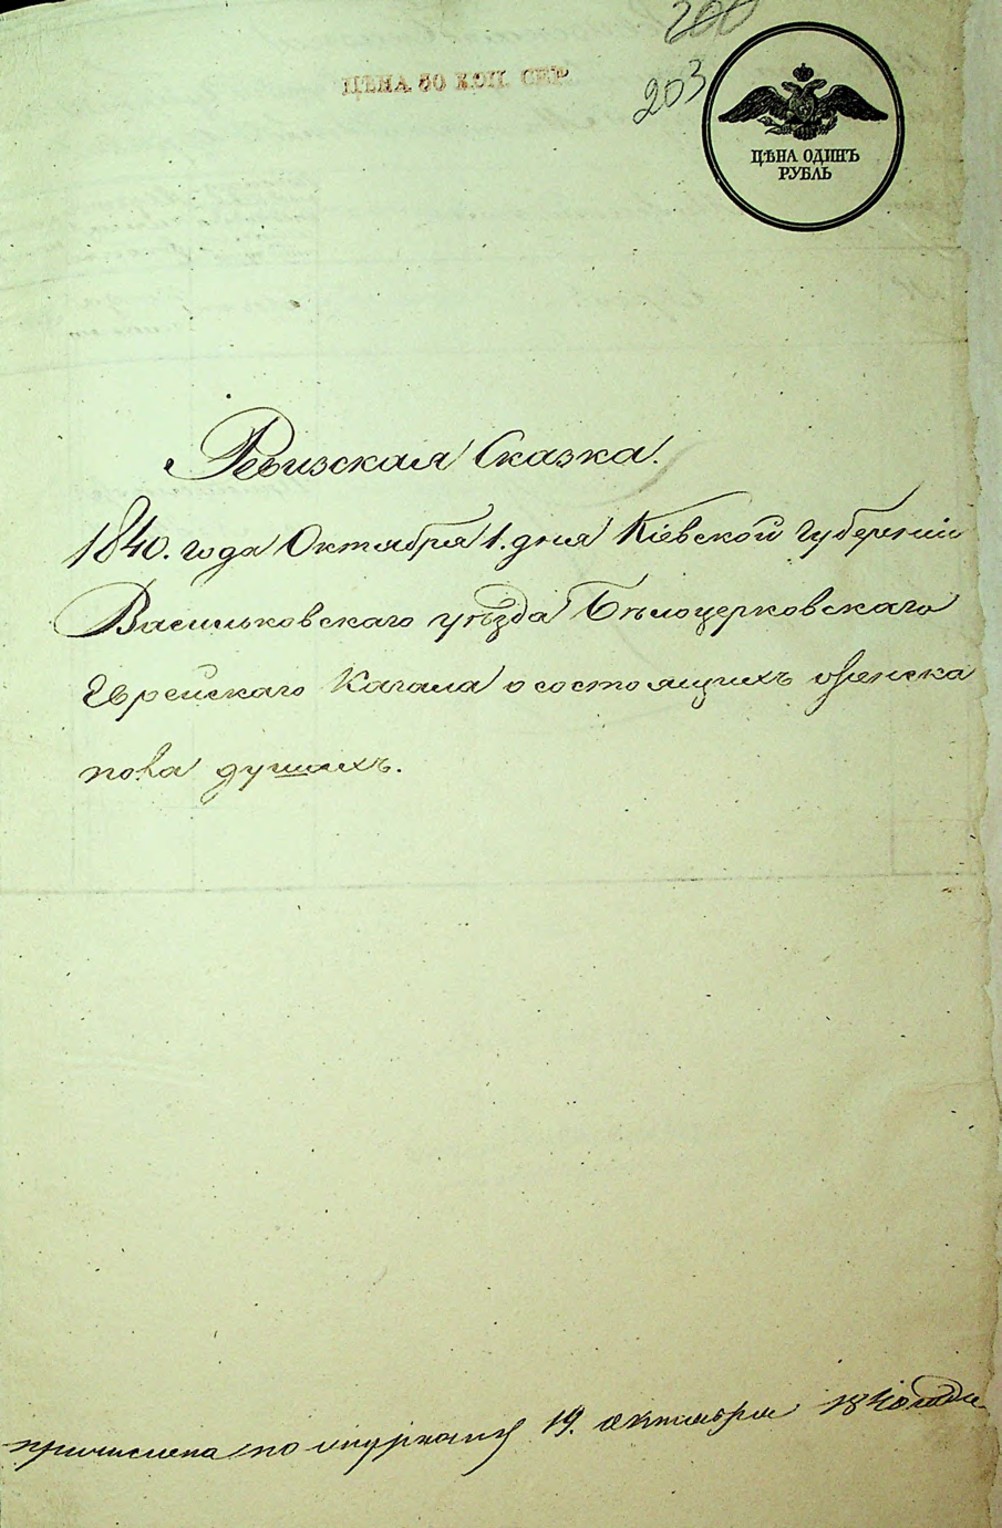 200
203
ЦѢНА 50 КОП. СЕР.
ЦѢНА ОДИНЪ
РУБЛЬ
Ревизская Сказка.
1840. года Октября 1. дня Кіевской Губерніи
Васильковскаго уѣзда Бѣлоцерковскаго
Еврейскаго Кагала о состоящихъ мужеска
пола душахъ.
причислена по журналу 19. октября 1840 года